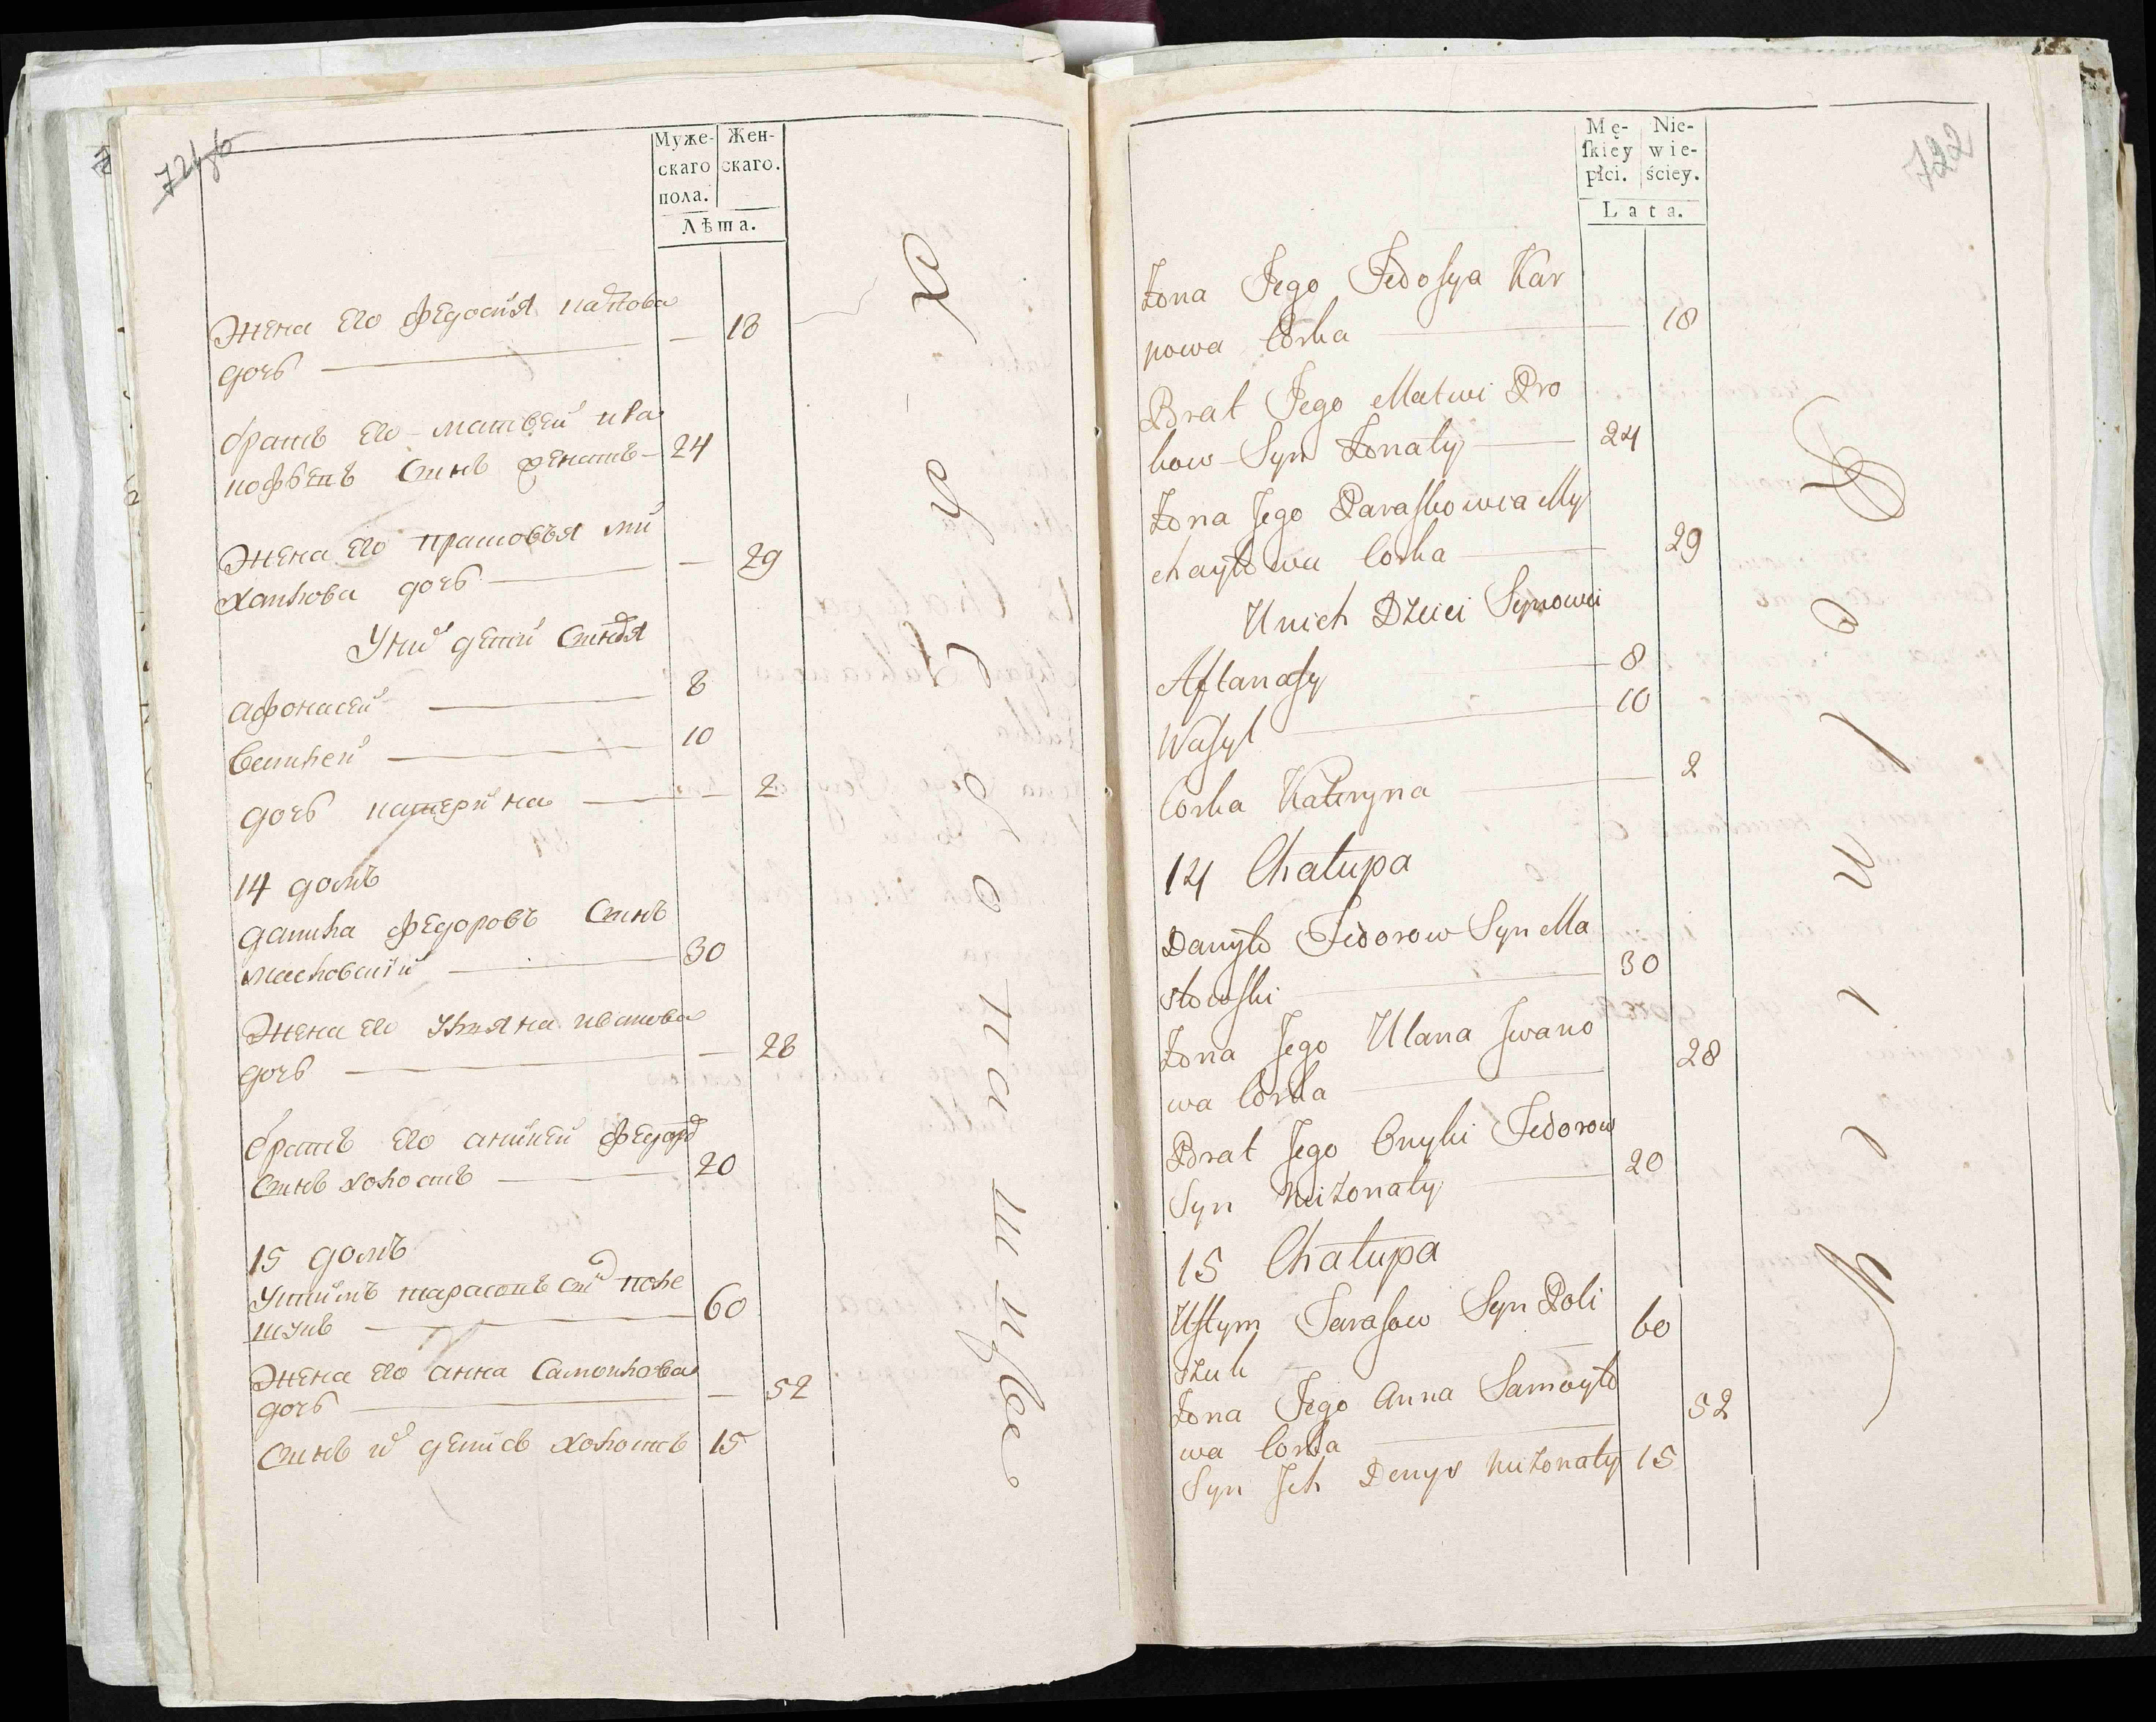 Муже-
скаго
пола.
Жен-
скаго.
Лѣта.
Жена Его Федосия
дочь — 18
братъ Его матвей
сынъ женатъ 24
Жена Его прасковья ми
хаилова дочь — 29
У них дети сыновя
афонасей 8
василей 10
дочь катерина — 2
14 домъ
данила Федоровъ Сынъ
масловский 30
Жена Его улияна иванова
дочь — 28
братъ Его аникей Федоров
Сынъ холостъ 20
15 домъ
устимъ тарасовъ сын поле
щукъ 60
Жена Его анна Самоилова
дочь — 52
Сынъ их денисъ холостъ 15
722
Mę-
ſkiey
płci.
Nie-
wie-
ściey.
Lata.
Żona Jego Fedosya Kar
powa Corka 18
Brat Jego Matwi Pro
kow Syn Żonaty 24
Żona Jego Paraskowia My
chayłowa Corka 29
U nich Dzieci Synowei
Aftanasy 8
Wasyl 10
Corka Kateryna 2
14 Chałupa
Danyło Fedorow Syn Ma
słowski 30
Żona Jego Ulana Jwano
wa Corka 28
Brat Jego Onyki Fedorow
Syn Nieżonaty 20
15 Chałupa
Ustym Tarasow Syn Poli
szuk 60
Żona Jego Anna Samoyło
wa Corka 52
Syn Jch Denys Nieżonaty 15